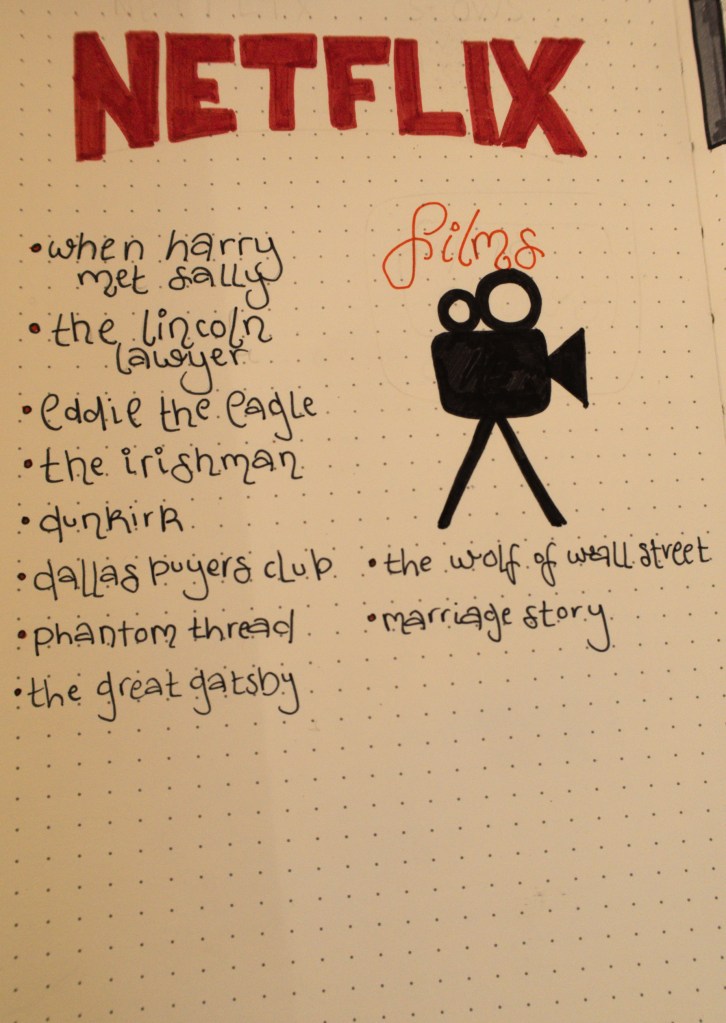 NETFLIX
films
•when harry
met sally
•the lincoln
lawyer
•eddie the eagle
•the irishman
•dunkirk
•dallas buyers club
•phantom thread
•the great gatsby
•the wolf of wall street
•marriage story